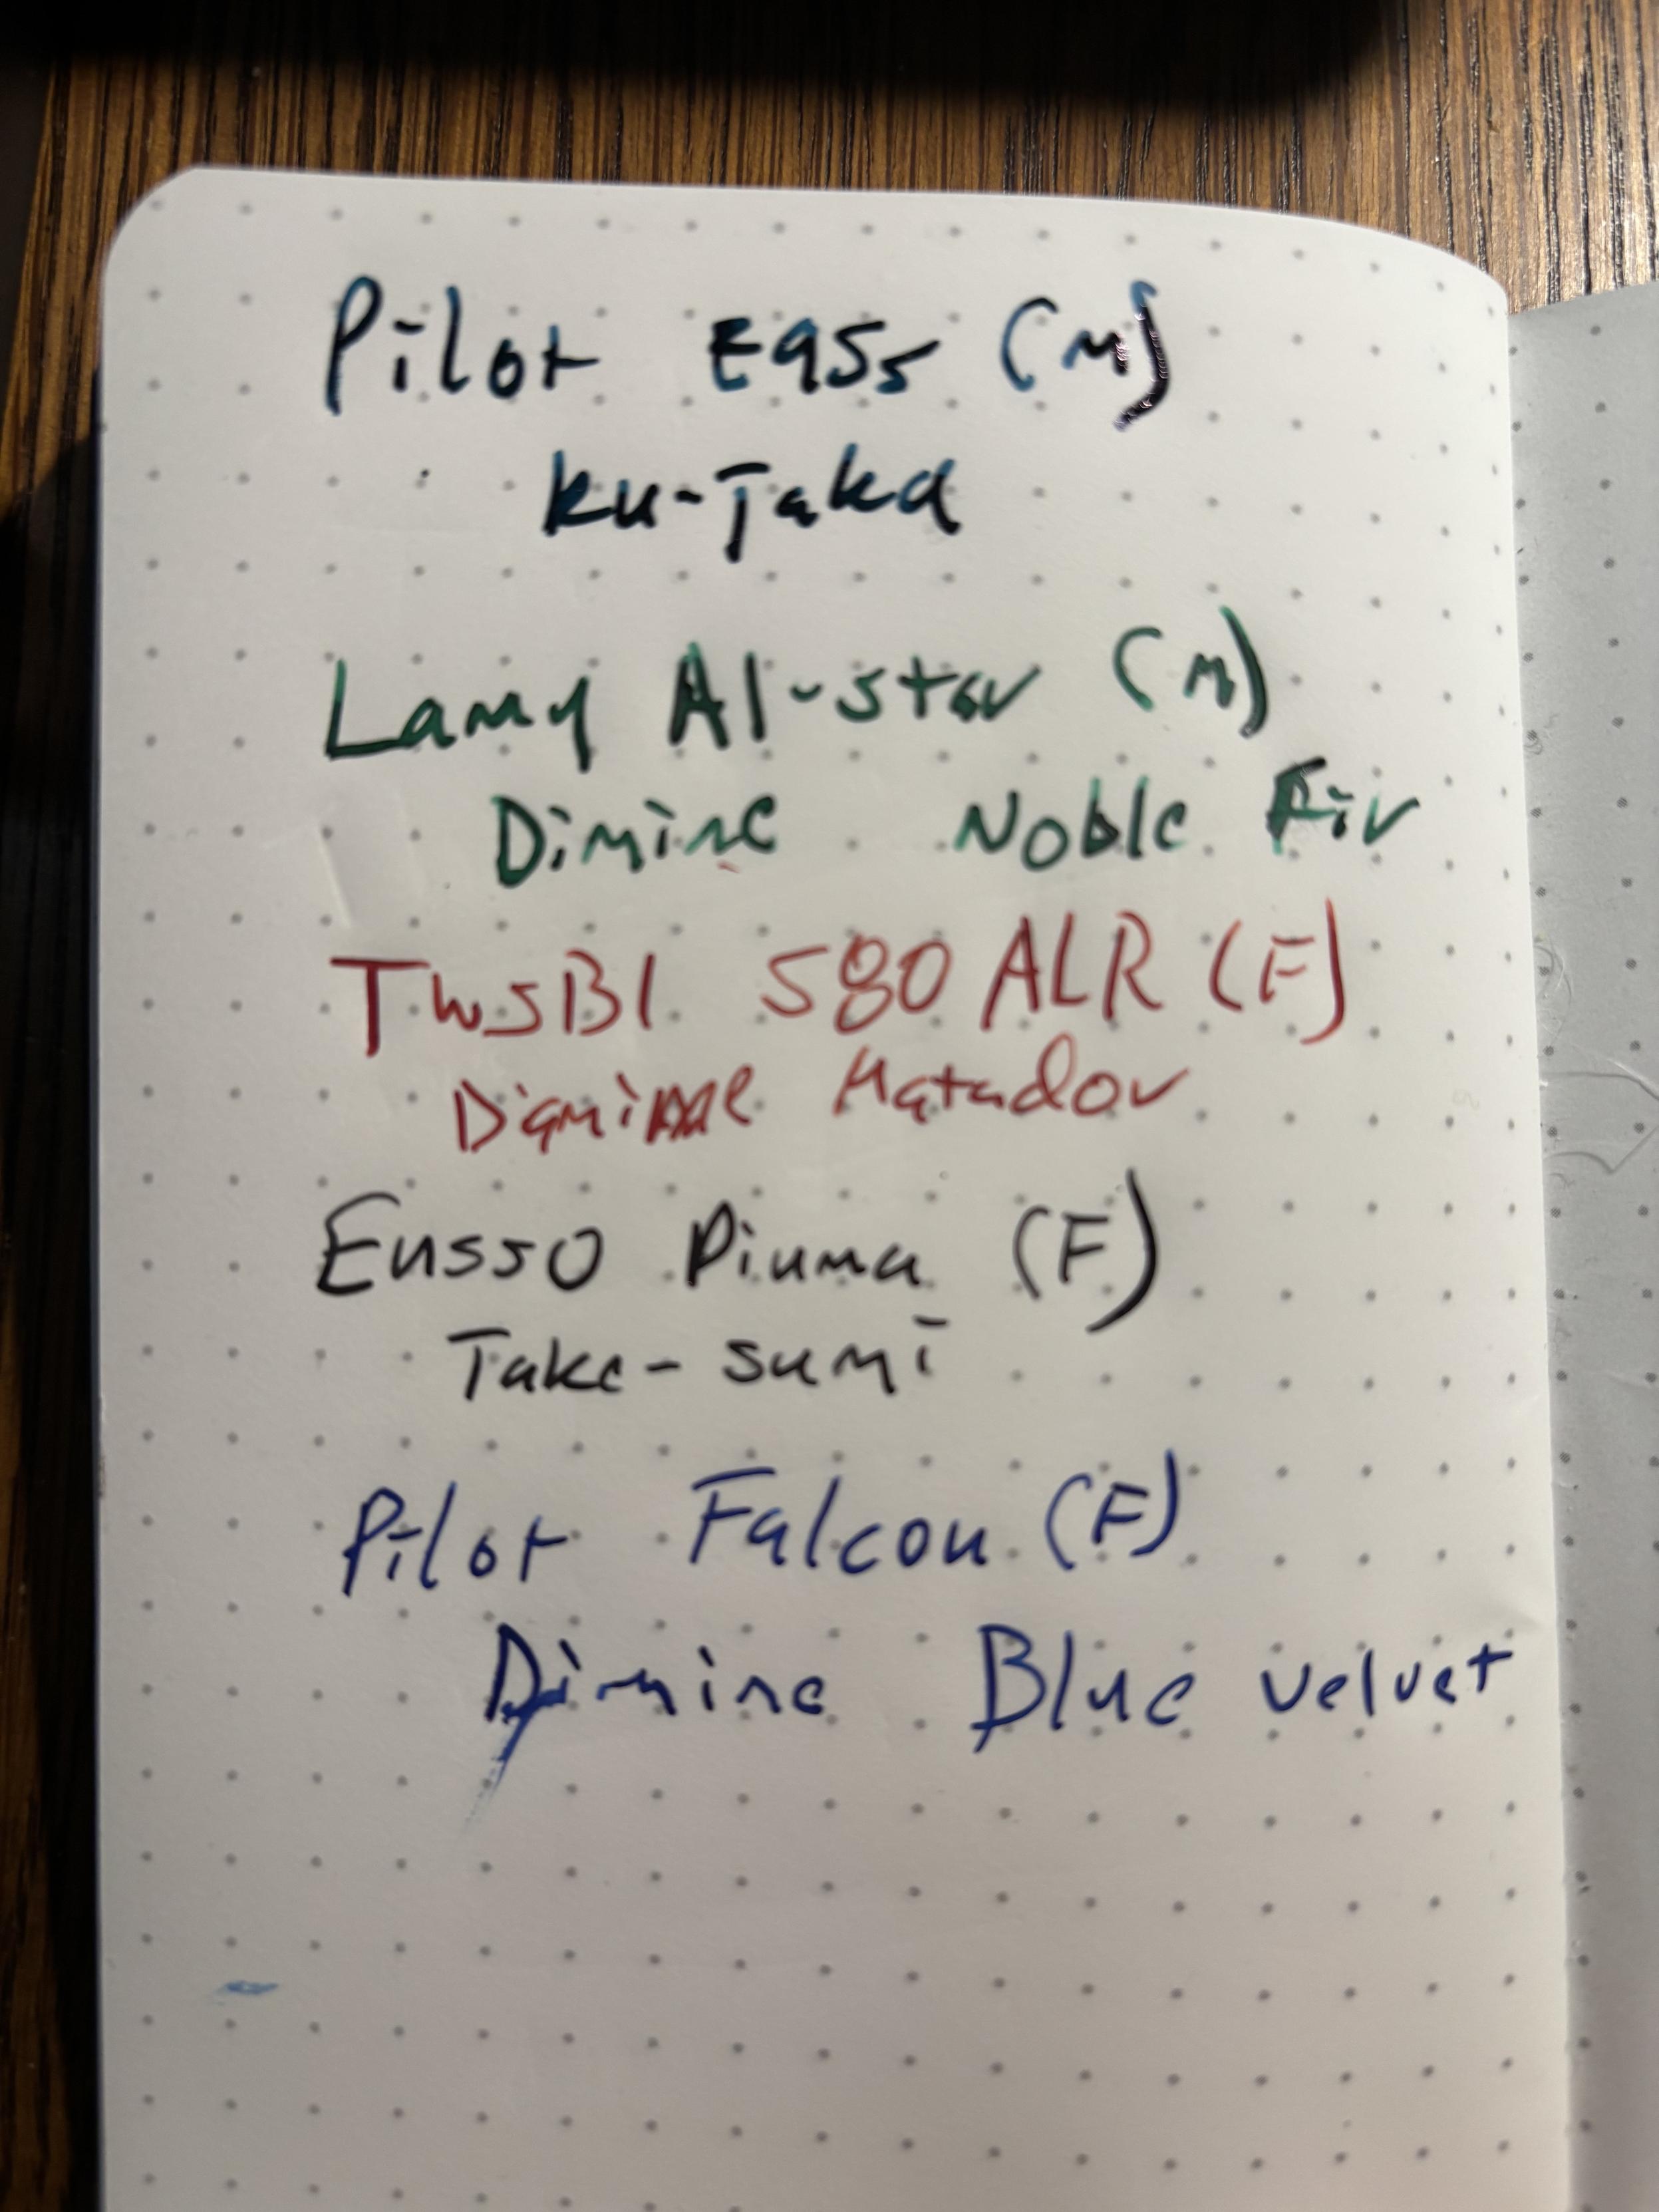 Pilot E95s (M)
Ku-Taka
Lamy Al-star (M)
Dimine Noble Fir
TWSBI 580 ALR (F)
Diamine Matador
Ensso Piuma (F)
Take-sumi
Pilot Falcon (F)
Dimine Blue velvet